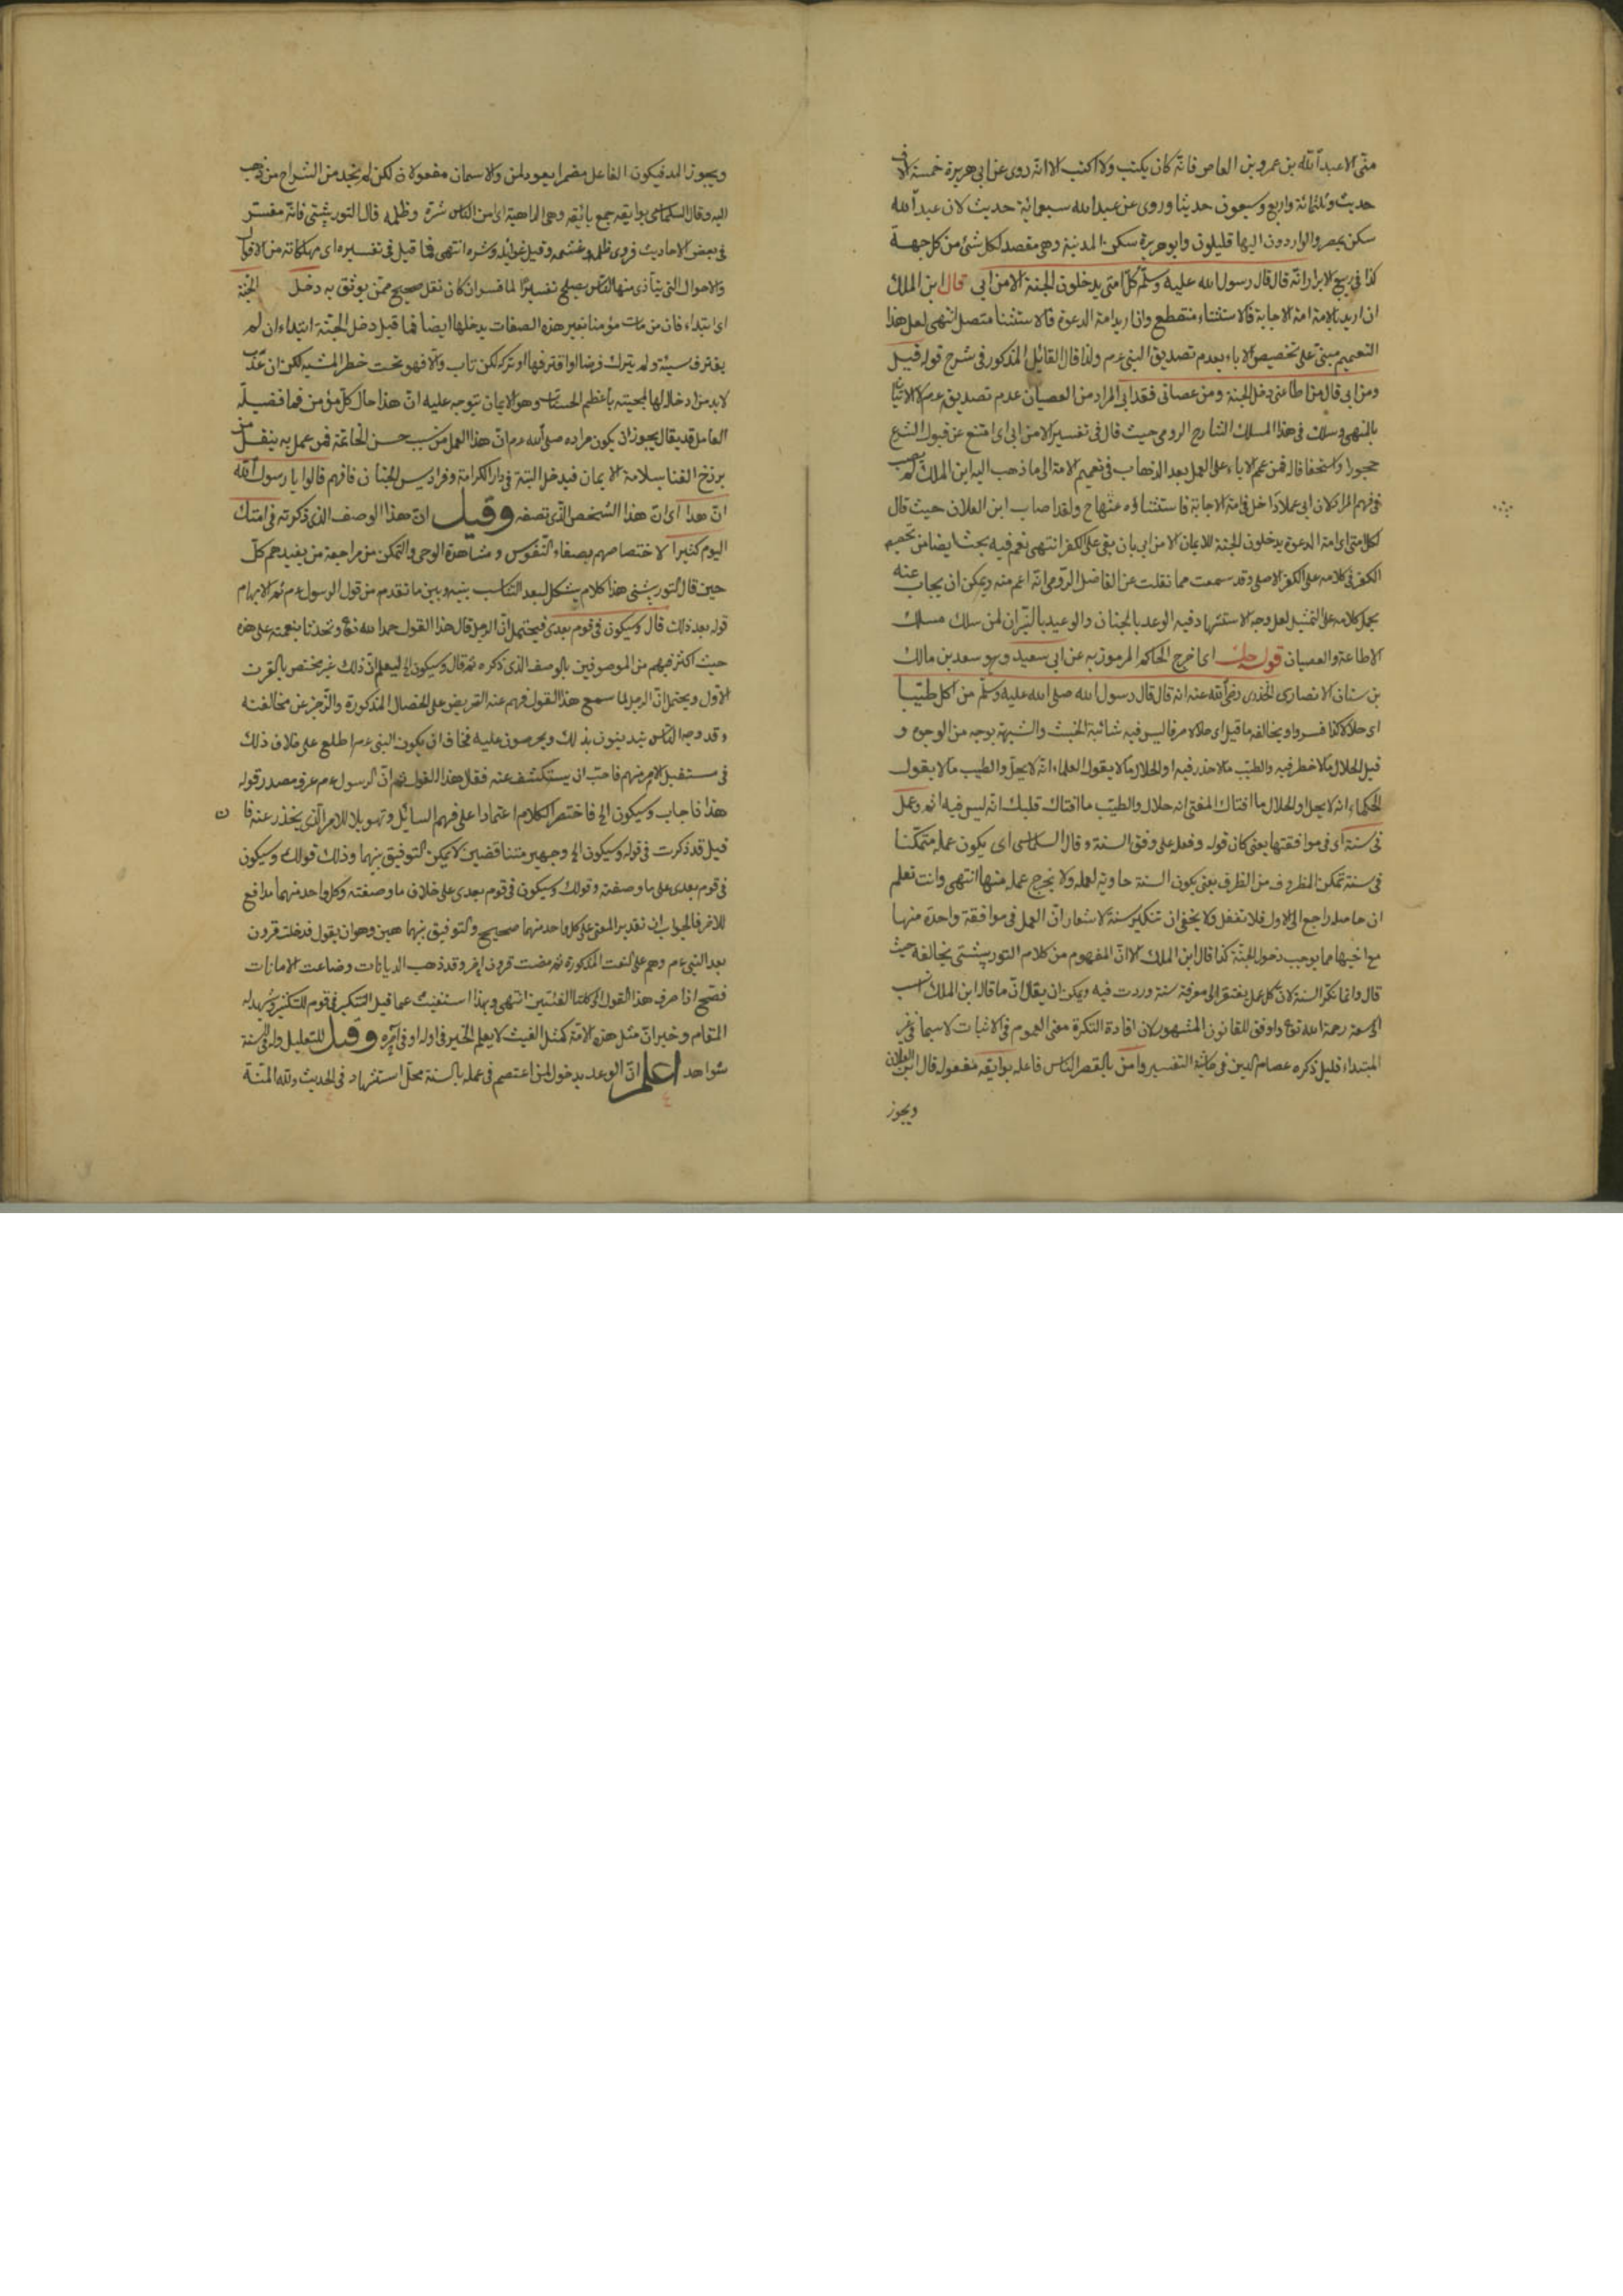 منى الا عبد الله بن عمرو بن العاص فانه كان يكتب ولا اكتب الا انه روى عن ابى هريرة خمسة الاف
حديث وثلثمائة واربع وسبعون حديثا وروى عن عبد الله سبعمائة حديث لان عبد الله
سكن بمصر والواردون اليها قليلون وابو هريرة سكن المدينة وهى مقصد لكل شئ من كل جهة
كذا فى ربيع الابرار انه قال قال رسول الله عليه وسلم كل امتى يدخلون الجنة الا من ابى قال ابن الملك
ان اريد بالامة امة الاجابة فالاستثناء منقطع وان اريد امة الدعوة فالاستثنا متصل انتهى لعل هذا
التعميم مبنى على تخصيص الاباء بعدم تصديق النبى عم ولذا قال القائل المذكور فى شرح قوله قيل
ومن ابى قال من اطاعنى دخل الجنة ومن عصانى فقد ابى المراد من العصيان عدم تصديق عم لا الاتيان
بالمنهى وسلك فى هذا المسلك الشارح الرومى حيث قال فى تفسير الا من ابى اى امتنع عن قبول الشرع
جحورا واستخفافا له فمن عمم الاباء على العمل بعد الذهاب فى تعميم الامة الى ما ذهب اليه ابن الملك لم يصب
فى فهم المراد لان ابى عملا داخل فى امة الاجابة فاستثناؤه عنها ح ولقد اصاب ابن العلان حيث قال
لكل امتى اى امة الدعوة يدخلون الجنة للايمان الا من ابى بان بقى على الكفر انتهى نعم فيه بحث ايضا من تخصيص
الكفر فى كلامه على الكفر الاصلى وقد سمعت مما نقلت عن الفاضل الرومى انه اعم منه ويمكن ان يجاب عنه
بحمل كلامه على التمثيل لعل وجه الاستشهاد فيه الوعد بالجنان والوعيد بالنيران لمن سلك مسلك
الاطاعة والعصيان قوله حك اى اخرج الحاكم المرموز به عن ابى سعيد وهو سعد بن مالك
بن سنان الانصارى الخدرى رضى الله عنه انه قال قال رسول الله صلى الله عليه وسلم من اكل طيبا
اى حلالا كذا فسروا ويخالفه ما قيل اى حلالا صرفا ليس فيه شائبة الخبث والشبهة بوجه من الوجوه و
قيل الحلال ما لا خطر فيه والطيب ما لا حذر فيه او الحلال ما لا يقول العلماء انه لا يحل والطيب ما لا يقول
الحكماء انه لا يحل او الحلال ما افتاك المفتى انه حلال والطيب ما افتاك قلبك انه ليس فيه اثم وعمل
فى سنة اى فى موافقتها يعنى كان قوله وفعله على وفق السنة وقال السكاسى اى يكون عمله متمكنا
فى سنة تمكن المظروف من الظرف يعنى يكون السنة حاوية لعمله ولا يخرج عمله منها انتهى وانت تعلم
ان حاصله راجع الى الاول فلا تغفل ولا يخفى ان تنكير سنة لاشعار ان العمل فى موافقة واحدة منها
مع اخيها مما يوجب دخول الجنة كذا قال ابن الملك الا ان المفهوم من كلام التوربشتى يخالفه حيث
قال وانما نكر السنة لان كل عمل يفتقر الى معرفة سنة وردت فيه ويمكن ان يقال ان ما قاله ابن الملك انسب
الى سعة رحمة الله تع واوفق للقانون المشهور لان افادة النكرة معنى العموم فى الاثبات لا سيما فى غير
المبتداء قليل ذكره عصام الدين فى حاشية التفسير وامن بالقصر الناس فاعله بوايقه مفعوله قال ابن العلان
ويجوز
ويجوز المد فيكون الفاعل مضمرا يعود لمن والاسمان مفعولان لكن لم نجد من الشراح من ذهب
اليه وقال السكاسى بوايقه جمع بائقة وهى الداهية اى امن الناس شره وظلمه قال التوربشتى فانه مفسر
فى بعض الاحاديث فروى ظلمه وغشمه وقيل غوائله وشره انتهى فما قيل فى تفسيره اى مهلكاته من الاقوال
والاحوال التى يتأذى منها الناس يصلح تفسيرا لما فسر ان كان نقل صحيح ممن يوثق به دخل الجنة
اى ابتداء فان من مات مؤمنا بغير هذه الصفات يدخلها ايضا فما قيل دخل الجنة ابتداء ان لم
يقترف سيئة ولم يترك فرضا او اقترفها او تركه لكن تاب والا فهو تحت خطر المشية لكن ان عذب
لا بد من ادخاله لها لمجيئه باعظم الحسنات وهو الايمان يتوجه عليه ان هذا حال كل مؤمن فما فضيلة
العامل قد يقال يجوز ان يكون مراده صلى الله عم ان هذا العمل من سبب حسن الخاتمة فمن عمل به ينقل من
برزخ الفنا بسلامة الايمان فيدخل البتة فى دار الكرامة وفراديس الجنان فافهم قالوا يا رسول الله
ان هذا اى ان هذا الشخص الذى تصفه وقيل ان هذا الوصف الذى ذكرته فى امتك
اليوم كثيرا لاختصاصهم بصفاء النفوس ومشاهدة الوحى والتمكن من مراجعة من يفيدهم كل
حين قال التوربشتى هذا كلام يشكل لبعد التناسب بينه وبين ما تقدم من قول الرسول عم ثم الابهام
قوله بعد ذلك قال وسيكون فى قوم بعدى فيحتمل ان الرجل قال هذا القول حمدا لله تع وتحدثا بنعمته على هذه
حيث اكثر فيهم من الموصوفين بالوصف الذى ذكره ثم قال وسيكون الخ ليعلم ان ذلك غير مختص بالقرن
الاول ويحتمل ان الرجل لما سمع هذا القول فهم عنه التحريض على الخصال المذكورة والزجر عن مخالفته
وقد وجد الناس يتدينون بذلك ويحرصون عليه فخاف ان يكون النبى عم اطلع على خلاف ذلك
فى مستقبل الامر منهم فاحب ان يستكشف عنه فقال هذا القول ثم ان الرسول عم عرف مصدر قوله
هذا فاجاب وسيكون الخ فاختصر الكلام اعتمادا على فهم السائل وتهويلا للامر الذى يحذر عنه فان
قيل قد ذكرت فى قوله وسيكون الخ وجهين متناقضين لا يمكن التوفيق بينهما وذلك قولك وسيكون
فى قوم بعدى على ما وصفته وقولك وسيكون فى قوم بعدى على خلاف ما وصفته وكل واحد منهما مدافع
للاخر فالجواب ان تقدير المعنى على كل واحد منهما صحيح والتوفيق بينهما هين وهو ان يقول قد خلت قرون
بعد النبى عم وهم على النعت المذكورة ثم مضت قرون اخر وقد ذهب الديانات وضاعت الامانات
فصح اذا صرف هذا القول الى كلتا الفئتين انتهى وبهذا استغنيت عما قيل التنكير فى قوم للتكثير ويشهد له
المقام وخبر ان مثل هذه الامة كمثل الغيث لا يعلم الخير فى اوله او فى آخره وقيل للتعليل وله فى السنة
شواهد اعلم ان الوعد بدخول لمن اعتصم فى عمله بالسنة محل استشهاد فى الحديث ولله المنة